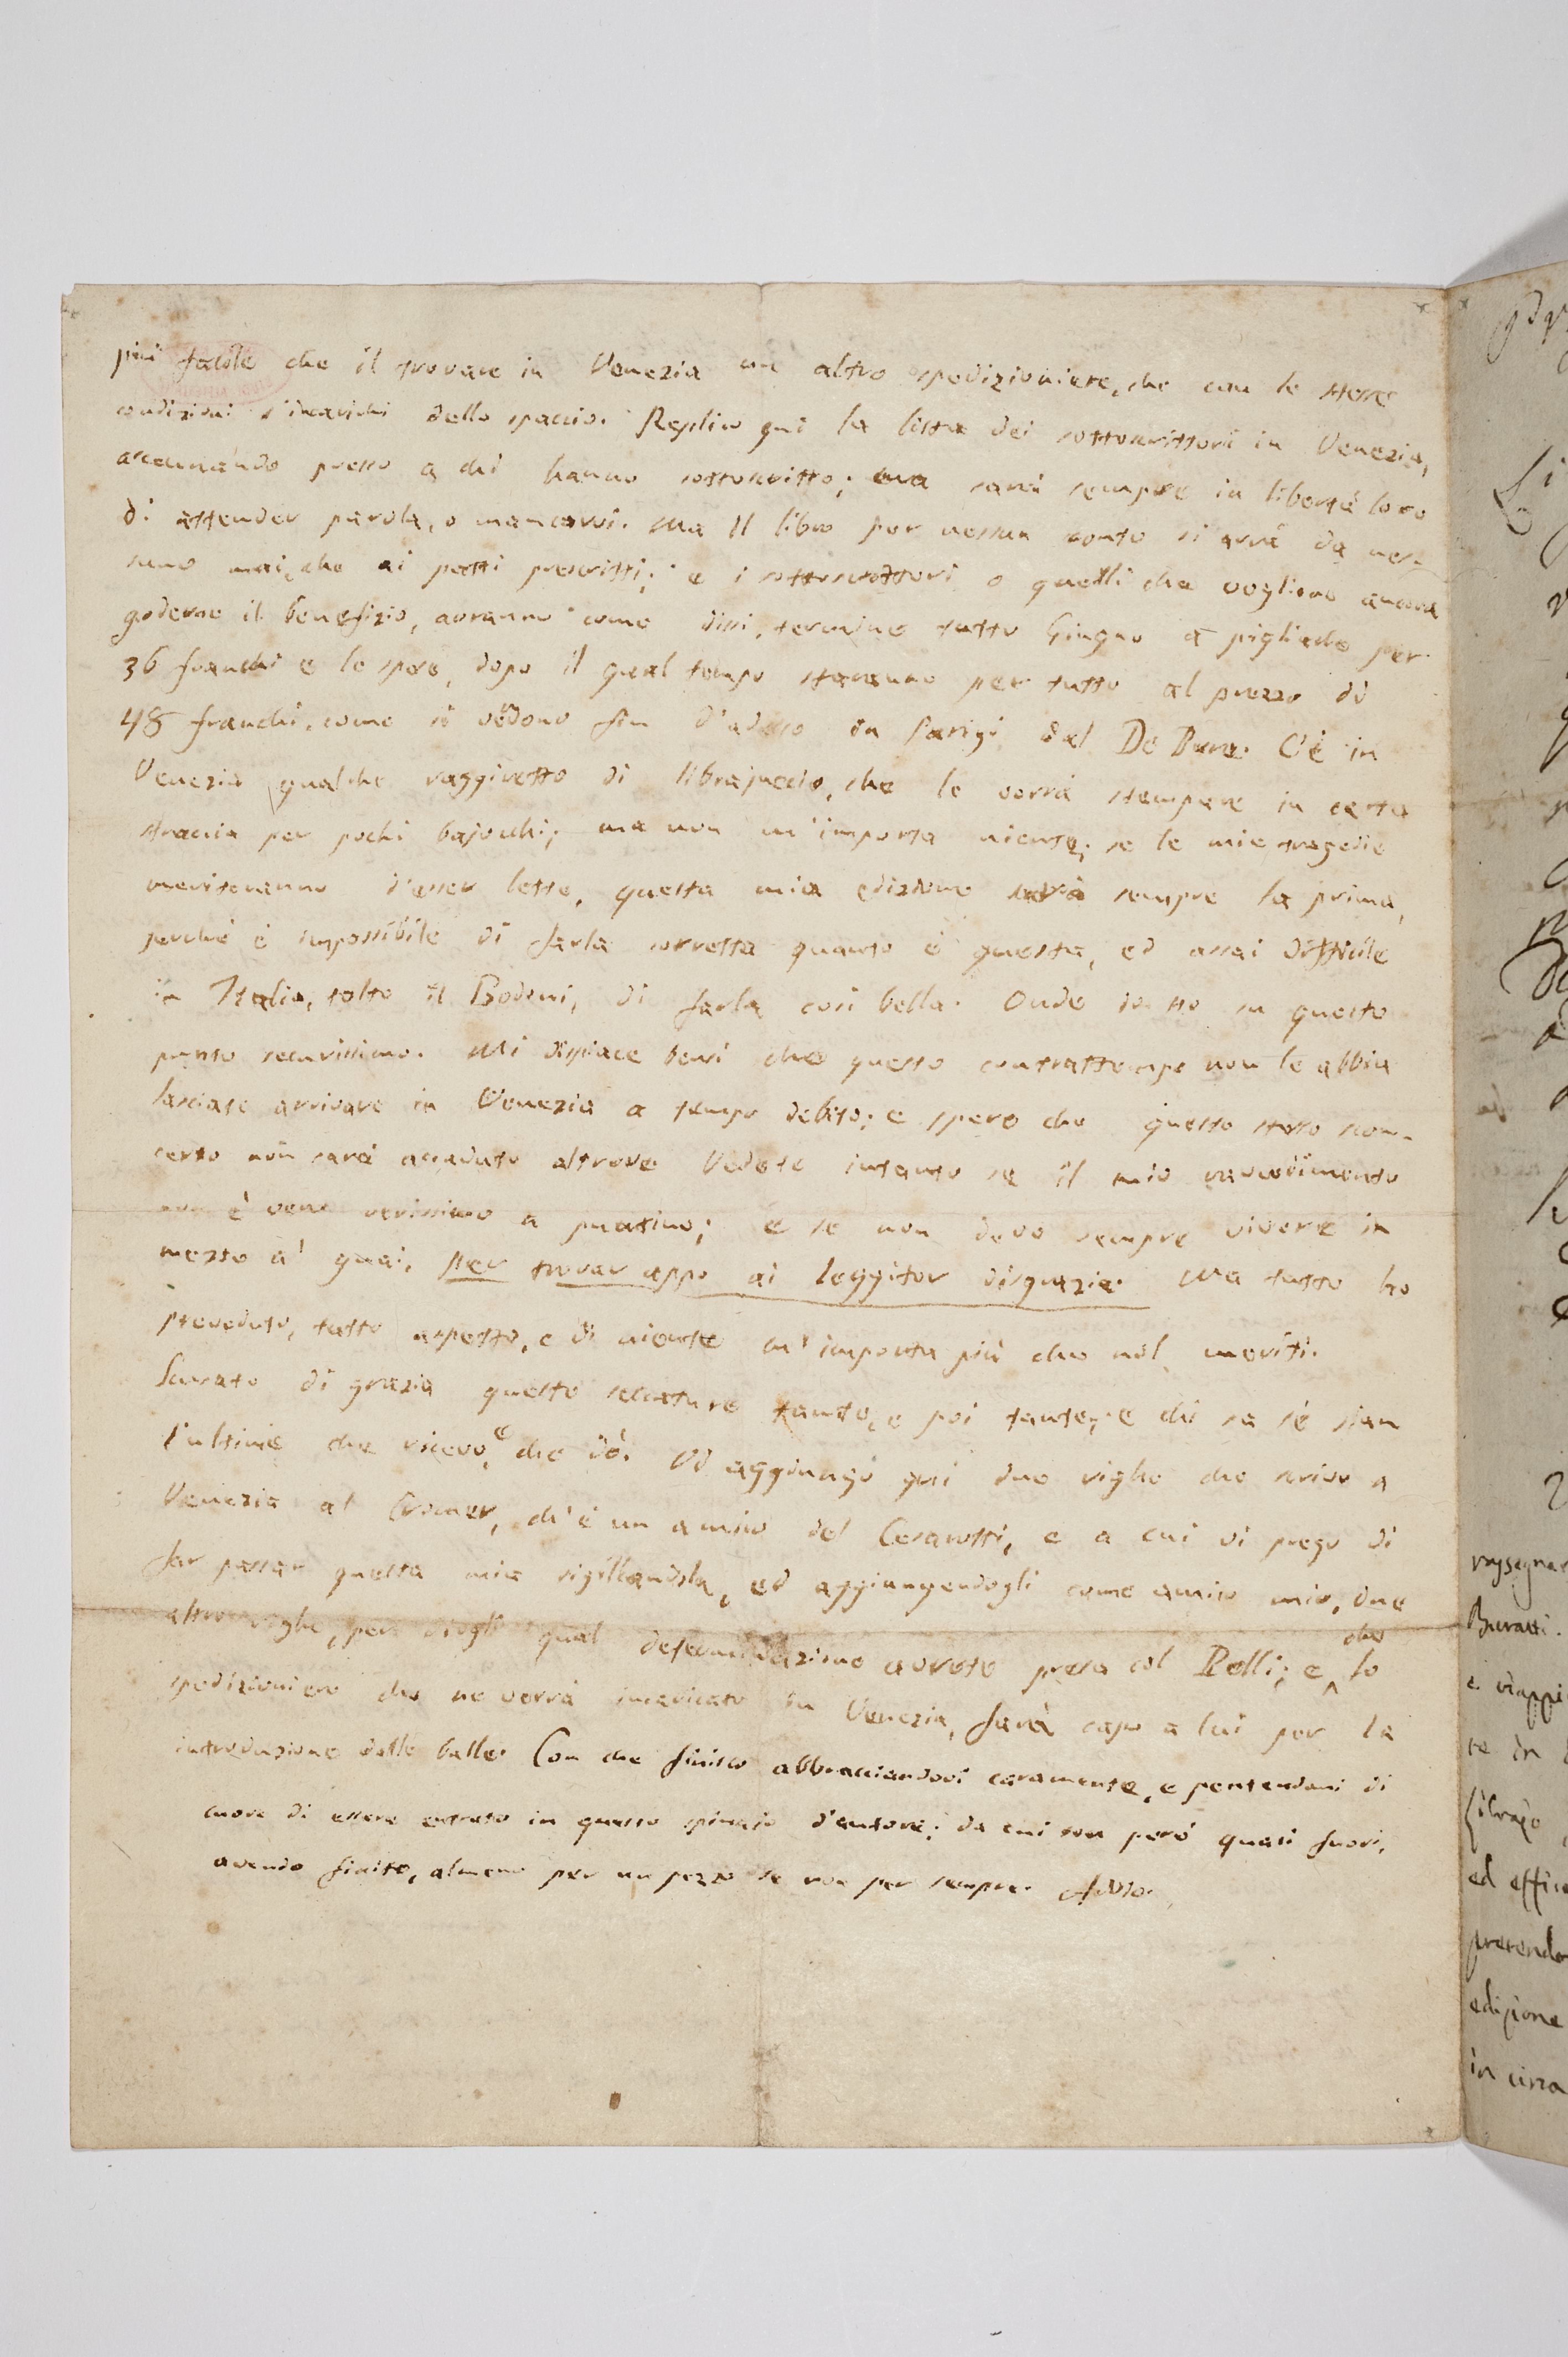 più facile che il trovare in Venezia un altro spedizioniere, che con le stesse
condizioni s'incarichi dello spaccio. Replico qui la lista dei sottoscrittori in Venezia,
accennando presso a chi hanno sottoscritto; ma sarà sempre in libertà loro
di attender parola, o mancarvi. Ma il libro per nessun conto si avrà da nes-
suno mai, che ai patti prescritti; e i sottoscrittori o quelli che vogliono ancora
goderne il benefizio, avranno come dissi, termine tutto Giugno a pigliarlo per
36 franchi e le spese, dopo il qual tempo staranno per tutto al prezzo di
48 franchi, come si vedono fin d'adesso in Parigi dal De Bure. C'è in
Venezia qualche raggiretto di librajuccio, che le vorrà stampare in carta
straccia per pochi bajocchi; ma non m'importa niente; se le mie tragedie
meriteranno d'esser lette, questa mia edizione sarà sempre la prima,
perchè è impossibile di farla corretta quanto è questa, ed assai difficile
in Italia, tolto il Bodoni, di farla così bella. Onde io sto su questo
punto securissimo. Mi dispiace bensì che questo contrattempo non le abbia
lasciate arrivare in Venezia a tempo debito; e spero che questo stesso scon-
certo non sarà accaduto altrove. Vedete intanto se il mio ravvedimento
non è vero verissimo a puntino; e se non devo sempre vivere in
mezzo a' guai, per trovar appo ai leggitor disgrazia. Ma tutto ho
preveduto, tutto aspetto, e di niente m'importa più che nol meriti.
Scusate di grazia queste seccature tante, e poi tante; e chi sa se sian
l'ultime che ricevo, e che dò. Vi aggiungo qui due righe che scrivo a
Venezia al Cromer, ch'è un amico del Cesarotti, e a cui vi prego di
far passar questa mia sigillandola, ed aggiungendogli come amico mio, due
altre righe, per dirgli qual determinazione avrete presa col Polli; e che lo
spedizioniere che ne verrà incaricato in Venezia, farà capo a lui per la
introduzione delle balle. Con che finisco abbracciandovi caramente, e pentendomi di
cuore di essere entrato in questo spinajo d'autore; da cui son però quasi fuori,
avendo finito, almeno per un pezzo se non per sempre. Addio.
Buratti.
ed
pretendo
edizione
in circa